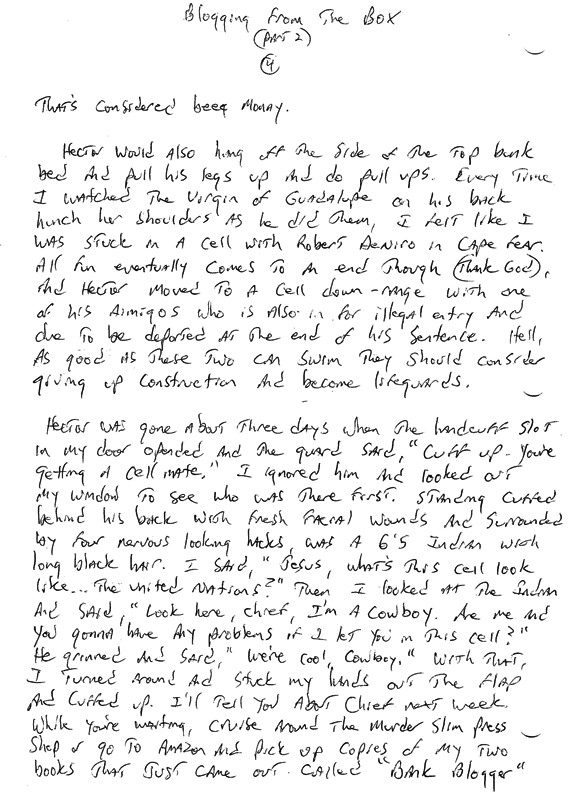 Blogging From The Box
(Part 2)
4
That's considered beer money.
Hector would also hang off the side of the top bunk
bed and pull his legs up and do pull ups. Every time
I watched the Virgin of Guadalupe on his back
hunch her shoulders as he did them, I felt like I
was stuck in a cell with Robert DeNiro in Cape Fear.
All fun eventually comes to an end though (Thank God),
and Hector moved to a cell down-range with one
of his Aimigos who is also in for illegal entry and
due to be deported at the end of his sentence. Hell,
as good as these two can swim they should consider
giving up construction and become lifeguards.
Hector was gone about three days when the handcuff slot
in my door opended and the guard said, "Cuff up. You're
getting a cell mate." I ignored him and looked out
my window to see who was there first. Standing cuffed
behind his back with fresh facial wounds and surrounded
by four nervous looking hacks, was a 6'5 Indian with
long black hair. I said, "Jesus, what's this cell look
like... The United Nations?" Then I looked at the Indian
and said, "Look here, chief, I'm a cowboy. Are me and
you gonna have any problems if I let you in this cell?"
He grinned and said, "We're cool, Cowboy." With that,
I turned around ad stuck my hands out the flap
and cuffed up. I'll tell you about Chief next week.
While you're waiting, cruise around the Murder Slim Press
Shop or go to Amazon and pick up copies of my two
books that just came out. Called "Bank Blogger"